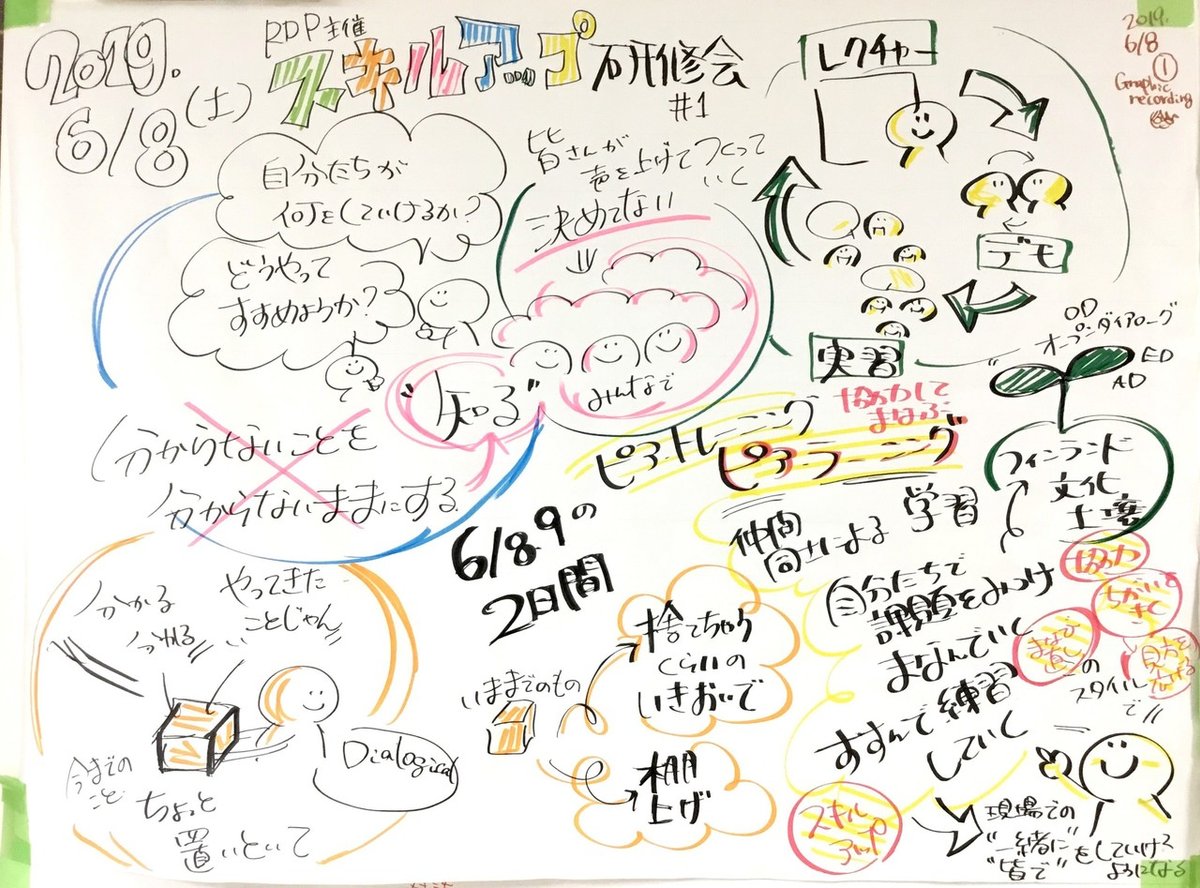 2019.
6/8(土)
RDP主催
スキルアップ研修会
#1
2019.
6/8
①
Graphic
recording
自分たちが
何をしていけるか?
どうやって
すすめようか?
皆さんが
声を上げてつくって
いく
決めてない
みんなで
レクチャー
デモ
実習
"知る"
分からないことを
分からないままにする
OD
オープンダイアローグ
ED
AD
フィンランド
文化
土壌
ピアトレーニング
協力して
まなぶ
ピアラーニング
仲間
同士による
学習
自分たちで
課題をみつけ
まなんでいく
すすんで練習
していく
協力
ちがいを
きく
まなび
直し
のスタイルで
見方を
広げる
6/8.9の
2日間
分かる
分かれる
やってきた
ことじゃん
今までの
こと
ちょっと
置いといて
Dialogical
いままでのもの
捨てちゃう
くらいの
いきおいで
棚
上げ
スキル
アップ
現場での
"一緒に"
"皆で"
をしていける
ようになる